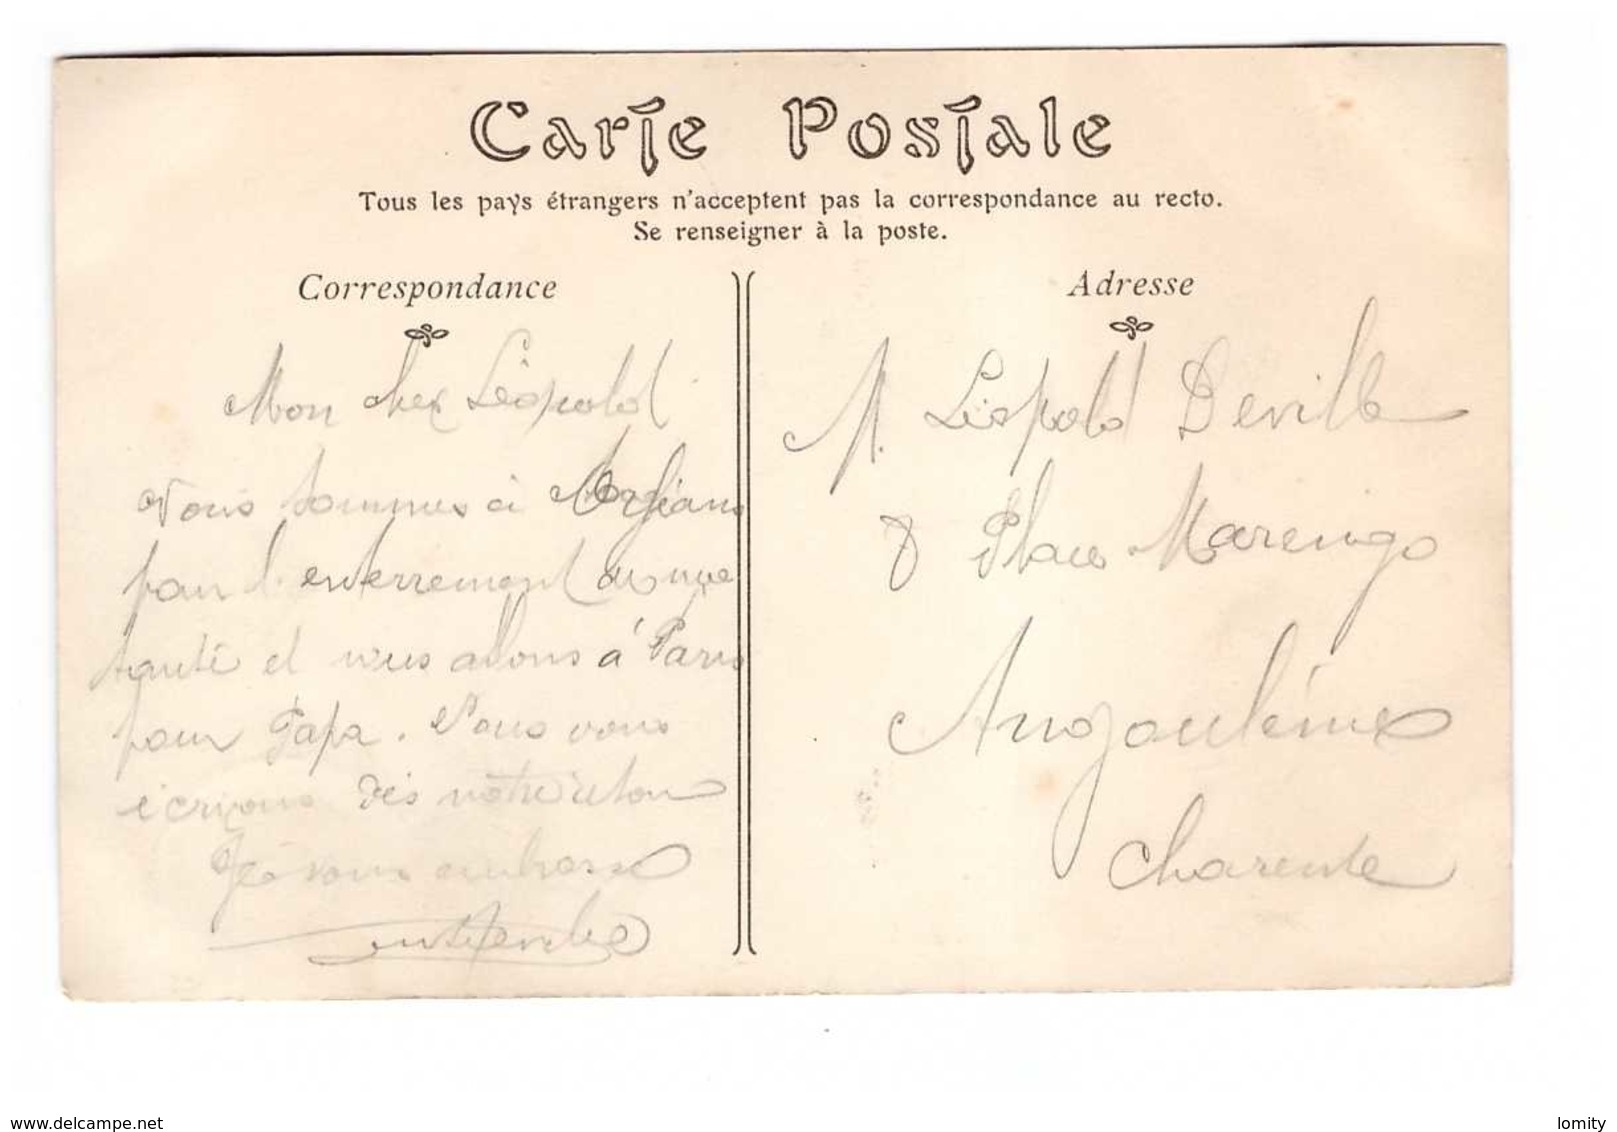 Carte Postale
Tous les pays étrangers n'acceptent pas la correspondance au recto.
Se renseigner à la poste.
Correspondance
Mon cher Léopold
Nous sommes à
pour l'enterrement
tante et nous allons à Paris
pour Papa. Nous vous
écrirons dès notre retour
Je vous embrasse
Adresse
M. Léopold Deville
8 Place Marengo
Angoulême
Charente
www.delcampe.net
lomity